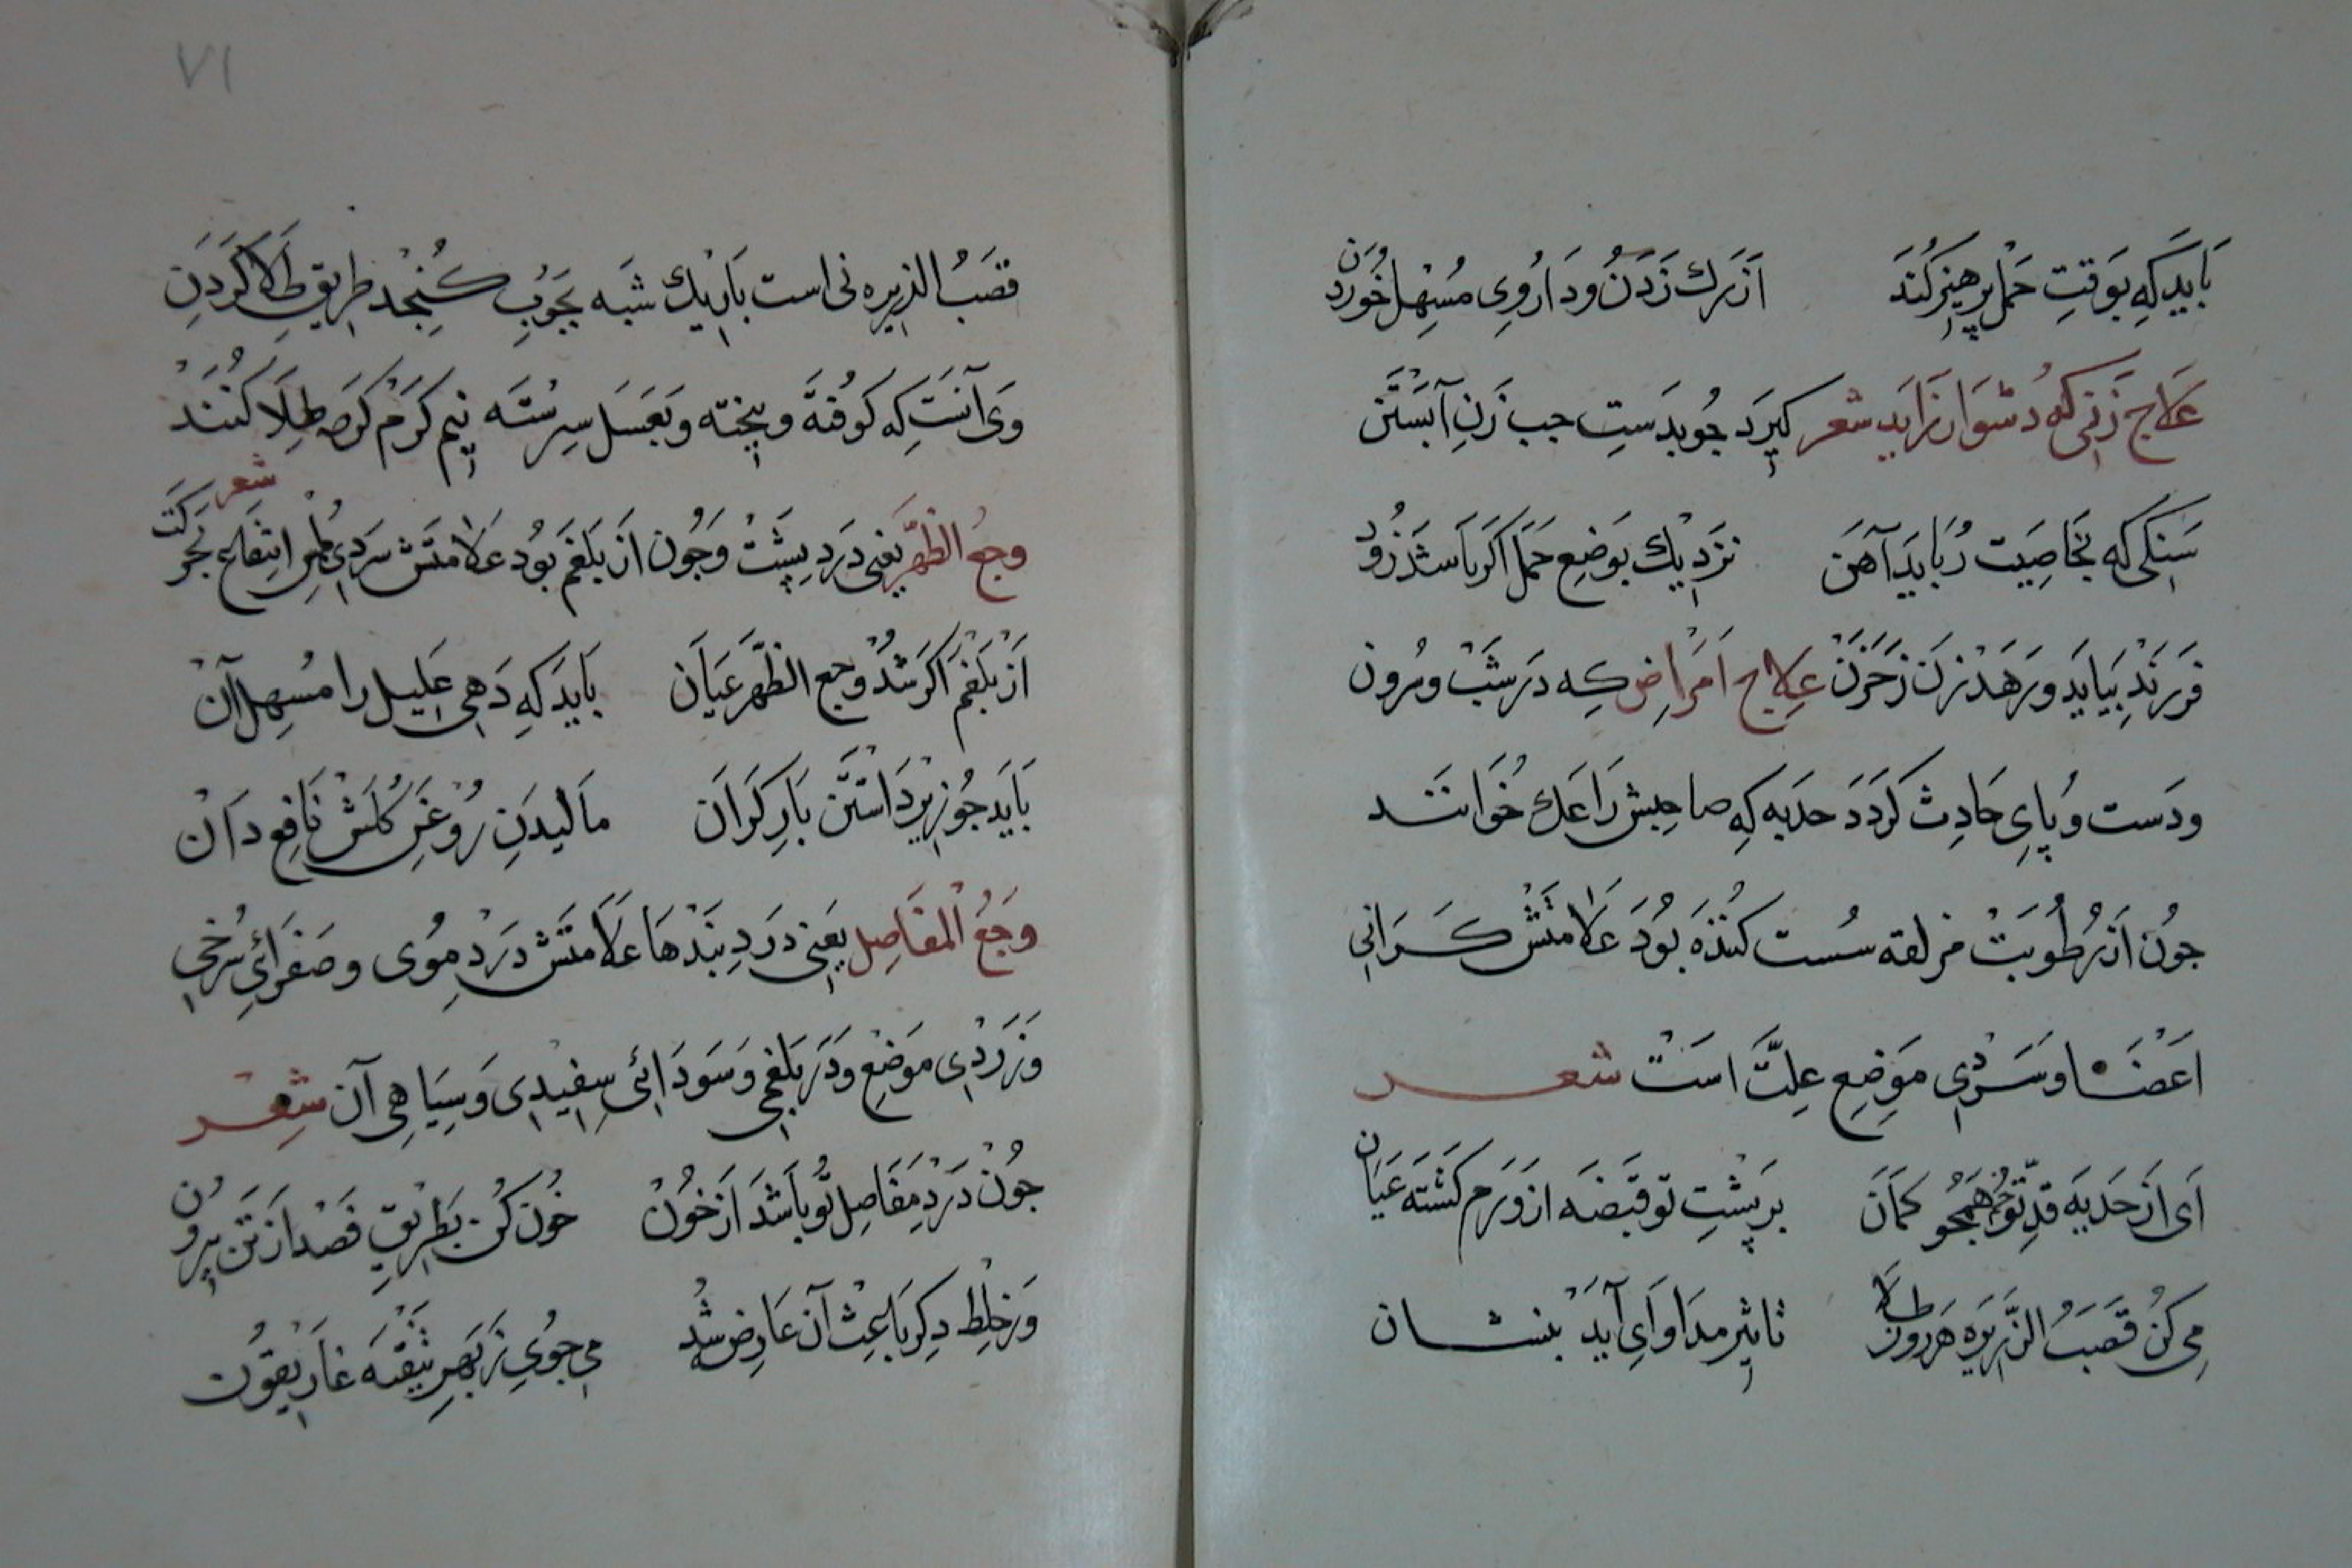 بَايَد كِه بوَقتِ حَمل پرهيز كُنَد از رَك زَدَن و دَارُوي مُسهِل خُوردَن
عَلاج زَنِي كِه دُشوَار زَايَد شعر كيرَد جُو بدَستِ جب زَنِ آبَستَن
سَنكي كه بخَاصِيَت رُبَايَد آهَن نزديك بوَضعِ حَمل اكَر بَاشَد زُود
فَرزَند بِيَايَد وَ رَهَد زَن زحَزَن عِلاج اَمراضِ كِه دَر شب و سُرون
و دَست وَ پاي حَادِث كَردَد حدبه كِه صاحِبش رَا خُوَانَنَد
جُون اَز رُطُوبَتْ مزلقه سُست كُننده بُوَد عَلامَتَش كَرَاني
اَعضَا و سَردي مَوضِع عِلَّت اسَتْ شعر
اَي اَز حَدبَه قدِّ تو هَمجُو كمَان بر پُشتِ تو قبضَه از وَرَم كَشتَه عَيَان
مِي كُن قَصَبُ الذَّريره هَر روز طلا تاثيرِ مدَاوَايِ آيَد بنشان
٧١
قصَبُ الذريره ني است بَاريك شبَه بجَوبِ كُنجد طريقِ طَلا كَردَنِ
وَي آنَست كِه كوفتَه و بيخته وبَعَسَل سِرِشتَه نيم كَرم كَرده طِلَا كُنَند
وجعُ الظَّهر يَعنِي دَردِ پُشت وَجُون اَز بَلغَم بُوَد عَلامَتَش سَردِي لمس انتفاع بحركت شعر
اَز بَلغَم اَكَر شُد وجع الظَّهر عَيَان بَايَد كِه دَهِي عَليل را مُسهِلِ آن
بَايَد جُو ز بردَاشتَن بَارِ كَرَان مَاليدَنِ رُوغَنِ كُلَش نَافِع دَان
وَجعُ المفَاصِل يعَنِي دَردِ بَندهَا عَلامَتَش دَر دمَوي و صَفرَائِ سُرخي
وَ زَردِي مَوضِع وَ دَر بَلغمي وَ سَودَائي سِفيدِي وَ سِيَاهِي آن شِعر
جُون دَردِ مَفَاصِل تُو بَاشَد اَز خُون خُون كُن بَطريقِ فَصد از تَن بيرُون
وَز خِلطِ دِكر بَاعِثِ آن عَارِض شُد مي جُوي زبَهرِ تنقيَه غَاريقُون